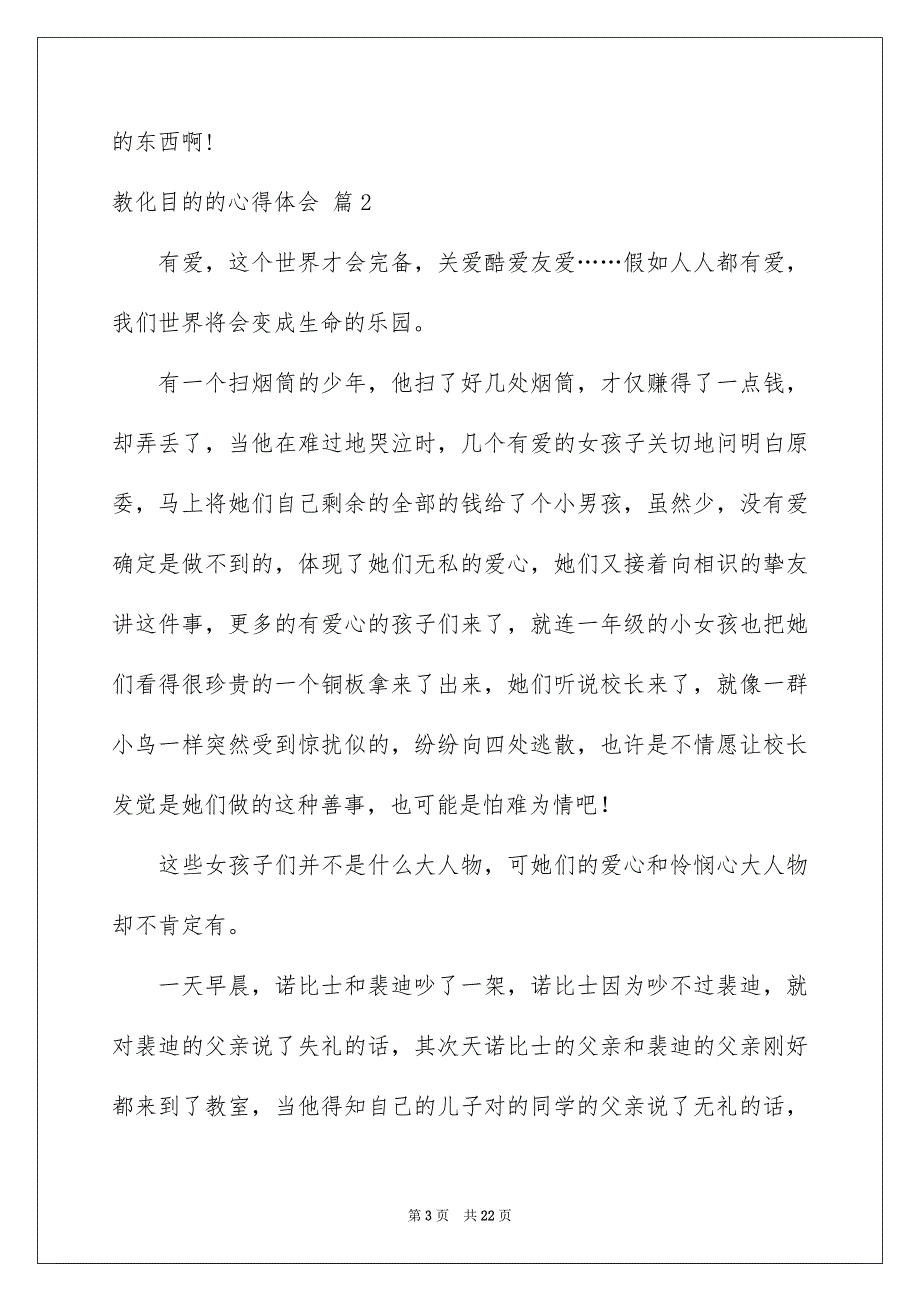 的东西啊!
教化目的的心得体会 篇2
有爱，这个世界才会完备，关爱酷爱友爱……假如人人都有爱，
我们世界将会变成生命的乐园。
有一个扫烟筒的少年，他扫了好几处烟筒，才仅赚得了一点钱，
却弄丢了，当他在难过地哭泣时，几个有爱的女孩子关切地问明白原
委，马上将她们自己剩余的全部的钱给了个小男孩，虽然少，没有爱
确定是做不到的，体现了她们无私的爱心，她们又接着向相识的挚友
讲这件事，更多的有爱心的孩子们来了，就连一年级的小女孩也把她
们看得很珍贵的一个铜板拿来了出来，她们听说校长来了，就像一群
小鸟一样突然受到惊扰似的，纷纷向四处逃散，也许是不情愿让校长
发觉是她们做的这种善事，也可能是怕难为情吧！
这些女孩子们并不是什么大人物，可她们的爱心和怜悯心大人物
却不肯定有。
一天早晨，诺比士和裴迪吵了一架，诺比士因为吵不过裴迪，就
对裴迪的父亲说了失礼的话，其次天诺比士的父亲和裴迪的父亲刚好
都来到了教室，当他得知自己的儿子对的同学的父亲说了无礼的话，
第 3 页 共 22 页